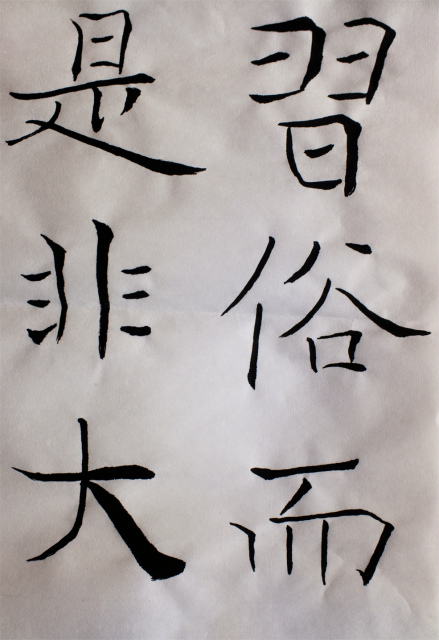 習俗而
是非大